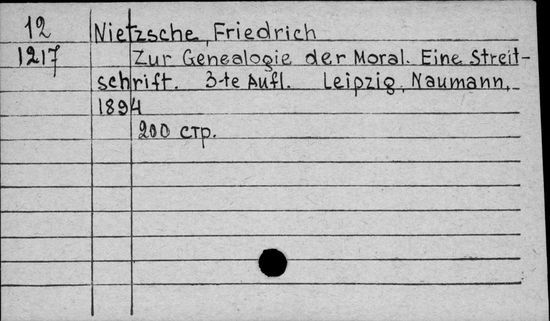 12
Nietzsche, Friedrich
1217
Zur Genealogie der Moral. Eine Streit-
schrift. 3-te Aufl. Leipzig, Naumann,
1894
200 стр.